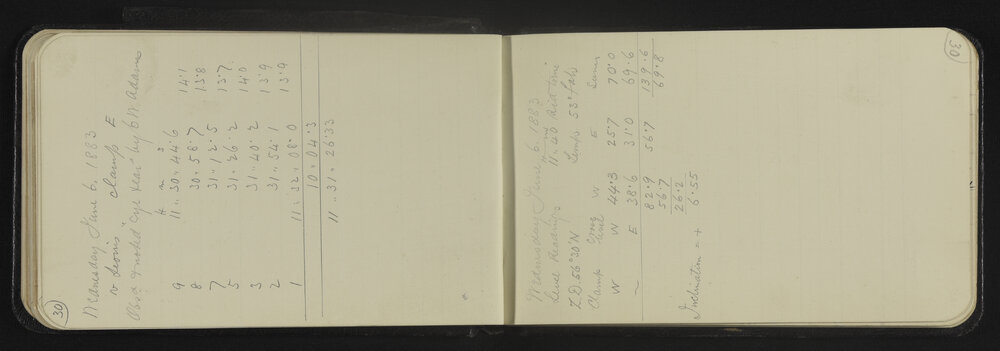 30
Wednesday June 6, 1883
υ Leonis clamp E
Obsd & noted "eye & ear" by C W Adams
H m s
9 11 .. 30 .. 44.6 14.1
8 30 .. 58.7 13.8
7 31 .. 12.5 13.7
5 31 .. 26.2 14.0
3 31 .. 40.2 13.9
2 31 .. 54.1 13.9
1 11 .. 32 .. 08.0
10 .. 04.3
11 .. 31 .. 26.33
30
Wednesday June 6, 1883
Level Readings 11 H 40 m Sid time
Z.D. 56°30'N Temp 53° Fah
Clamp Cross Level W E Sums
W W 44.3 25.7 70.0
~ E 38.6 31.0 69.6
82.9 56.7 139.6
56.7 69.8
26.2
6.55
Inclination = +